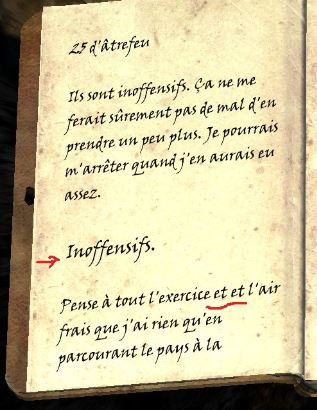 25 d'âtrefeu
Ils sont inoffensifs. Ça ne me
ferait sûrement pas de mal d'en
prendre un peu plus. Je pourrais
m'arrêter quand j'en aurais eu
assez.
Inoffensifs.
Pense à tout l'exercice et et l'air
frais que j'ai rien qu'en
parcourant le pays à la